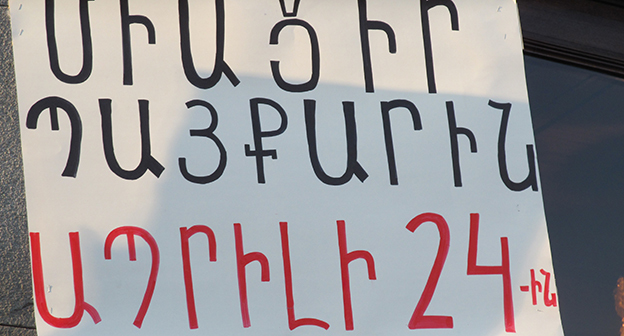 ՄԻԱՑԻՐ
ՊԱՅՔԱՐԻՆ
ԱՊՐԻԼԻ 24-ԻՆ